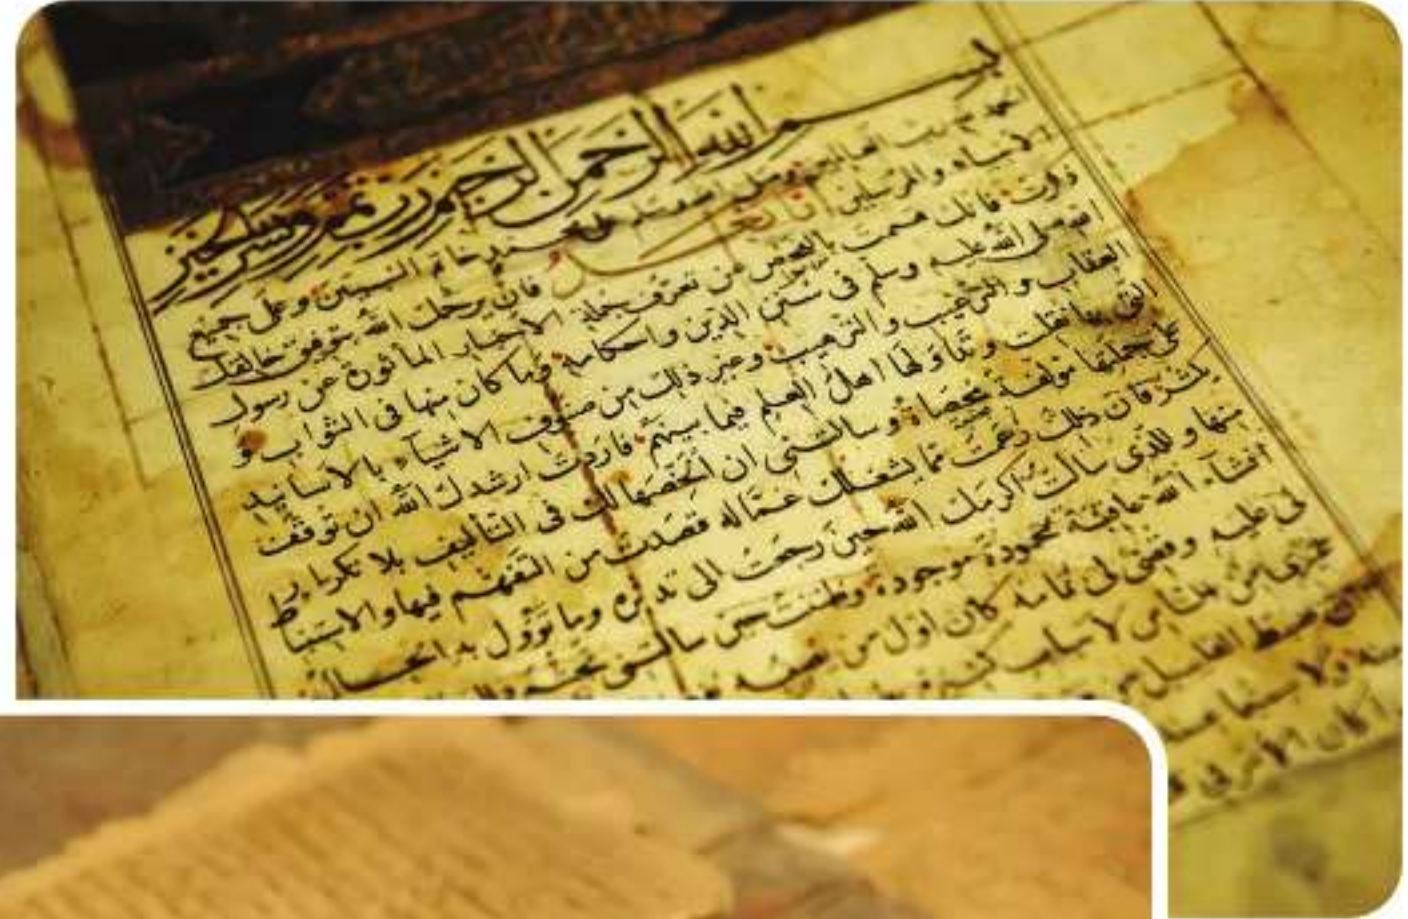 بسم الله الرحمن الرحيم رب تمم ويسر يا كريم
الحمد لله رب العالمين وصلى الله على محمد خاتم النبيين وعلى جميع
الانبياء والمرسلين اما بعد فانك يرحمك الله بتوفيق خالقك
ذكرت انك هممت بالفحص عن تعرف جملة الاخبار الماثورة عن رسول
الله صلى الله عليه وسلم في سنن الدين واحكامه وما كان منها في الثواب و
العقاب والترغيب والترهيب وغير ذلك من صنوف الاشياء بالاسانيد
التي بها نقلت وتداولها اهل العلم فيما بينهم فاردت ارشدك الله ان توقف
على جملتها مؤلفة محصاة وسالتني ان الخصها لك في التاليف بلا تكرار
يكثر فان ذلك زعمت مما يشغلك عما له قصدت من التفهم فيها والاستنباط
منها وللذي سالت اكرمك الله حين رجعت الى تدبره وما تؤول به الحال
انشاء الله عاقبة محمودة موجودة وظننت حين سالتني تجشم
لى عليه وقضى لى تمامه كان اول من
لاسباب كثيرة
ضبط القليل من
منه ولا سيما
كان الامر في